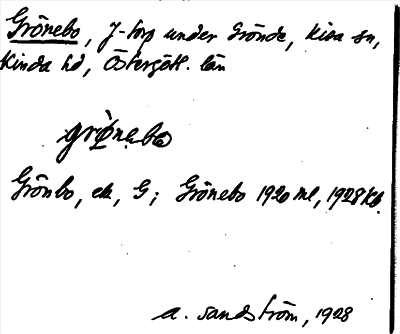 Grönebo, J-torp under Grönde, Kisa sn,
Kinda hd, Östergötl. län
grönebo
Grönbo, ek, G; Grönebo 1920 ml, 1928 kb
A. Sandström, 1928